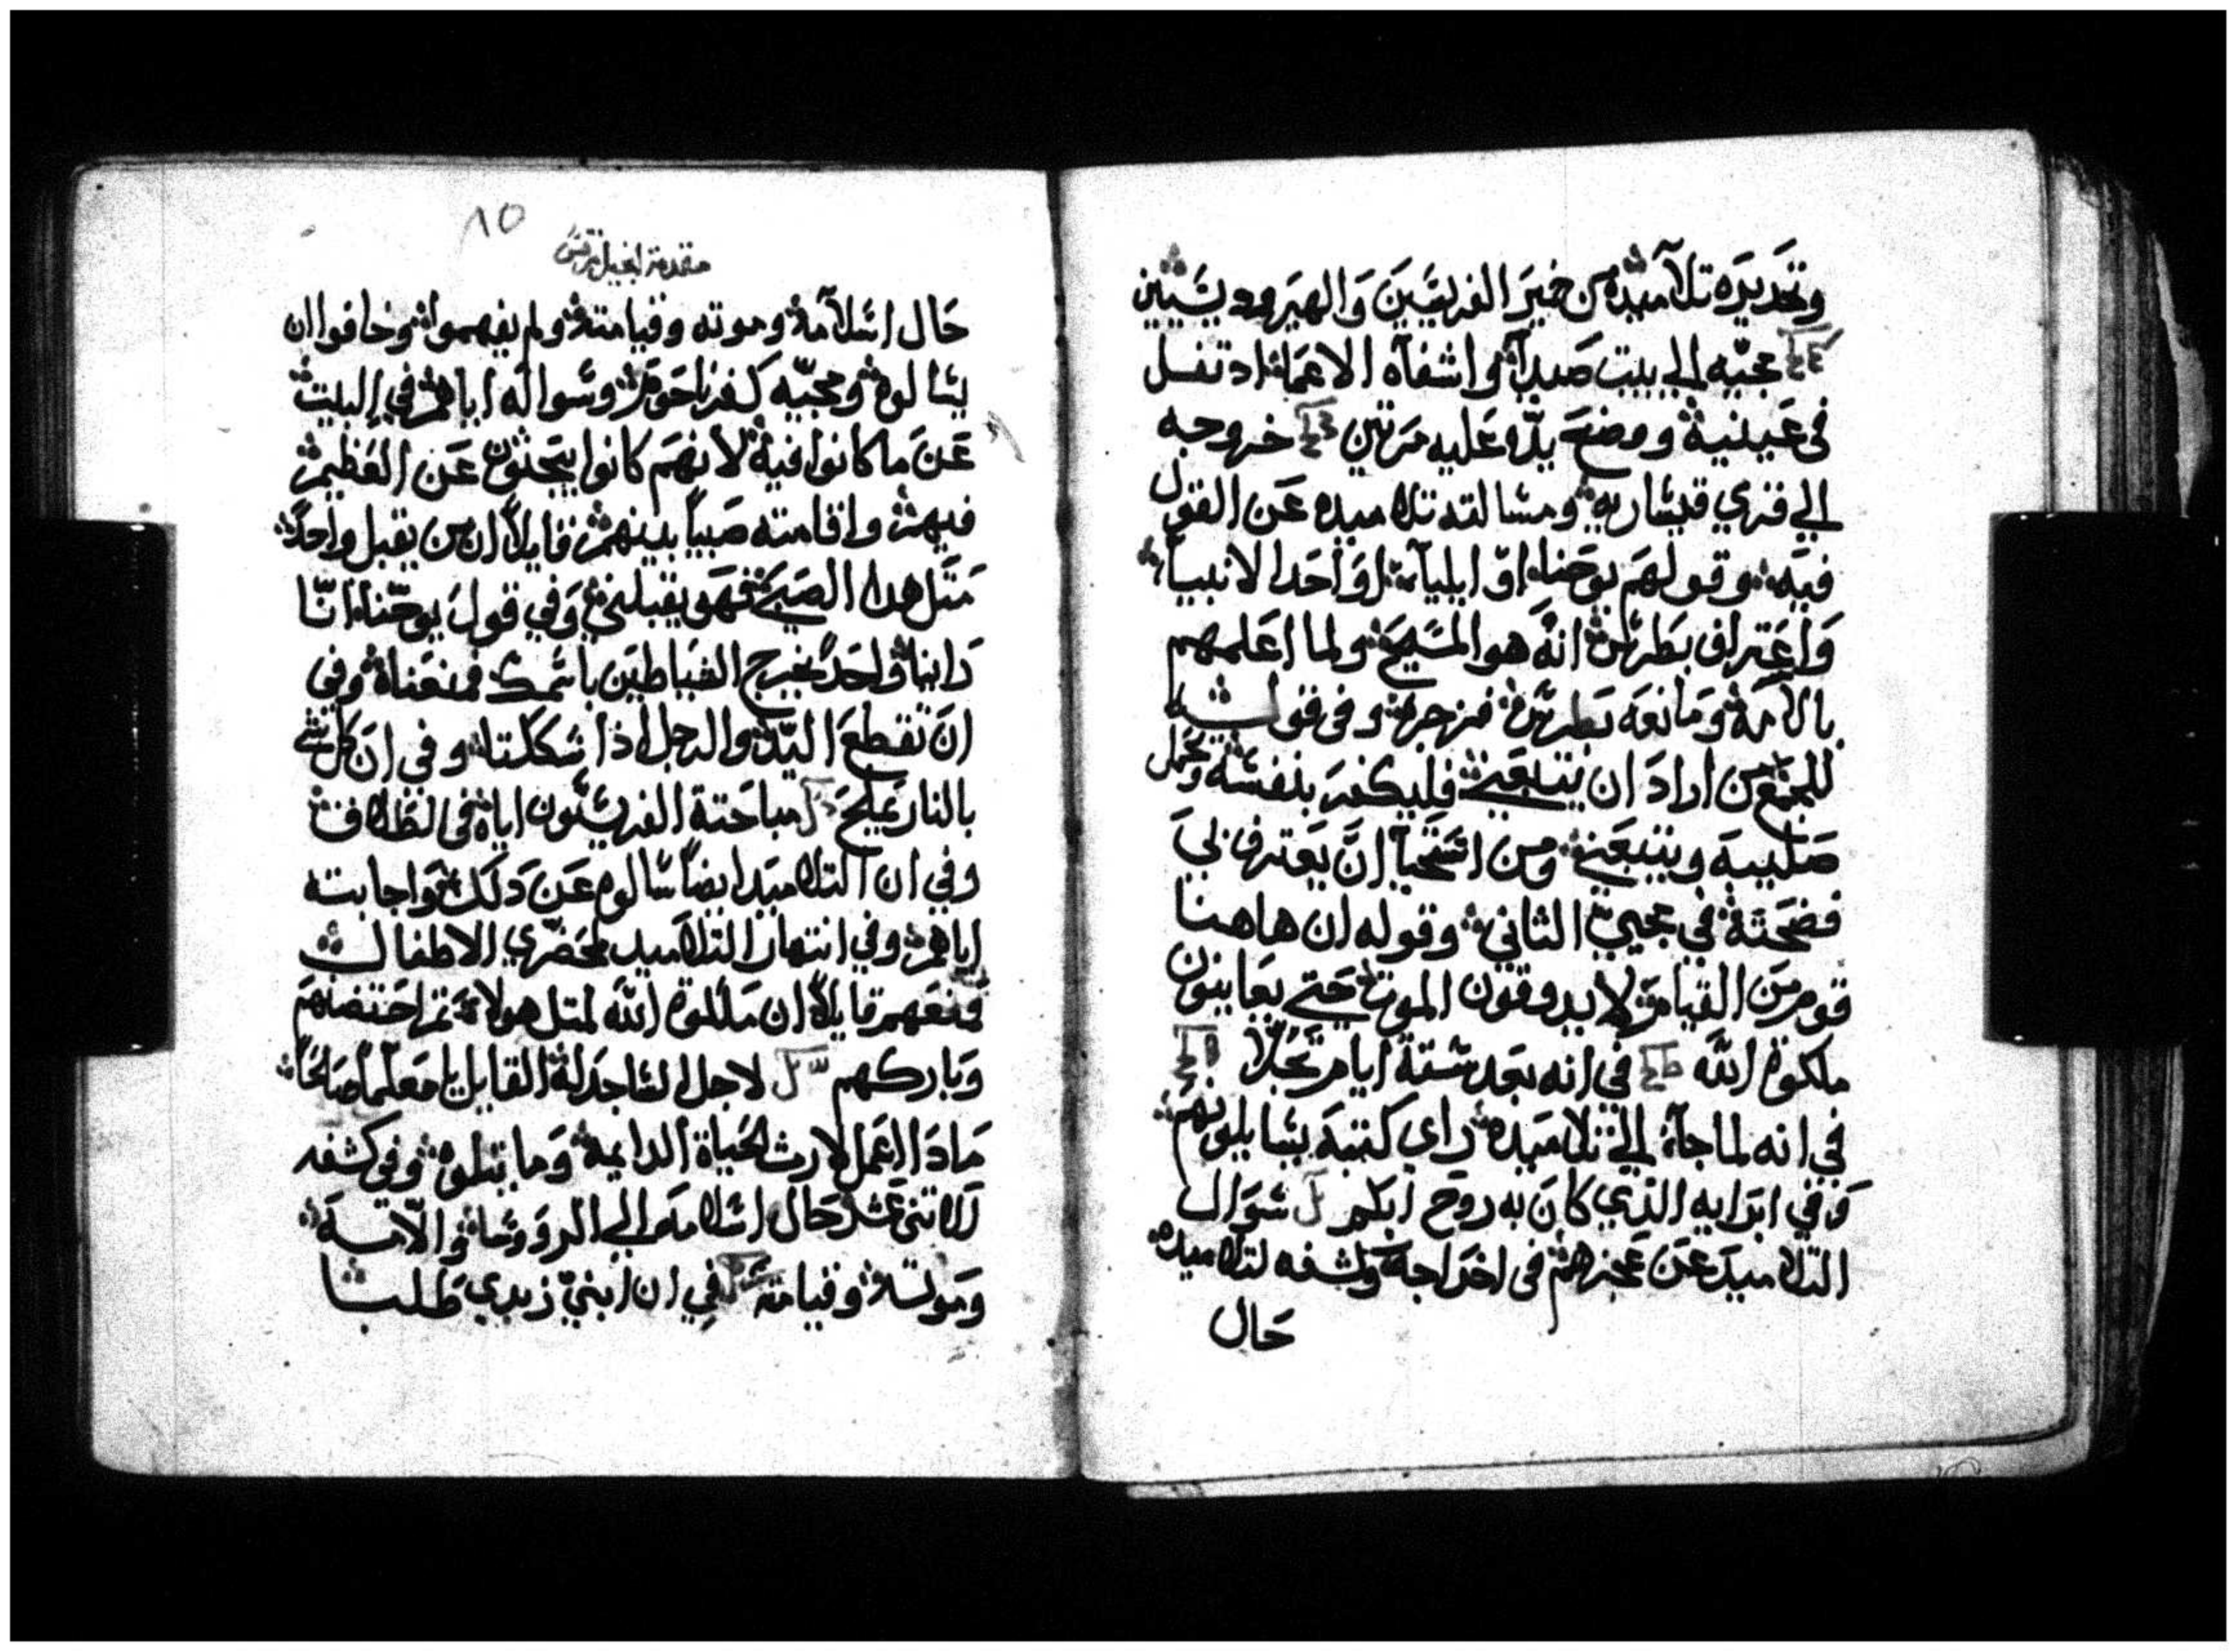 وتحديره تلاميده من خمير الفريسيين والهيروديسيين
مجيه الي بيت صيدا واشفاه الاعما اد تفل
في عينيه ووضع يده عليه مرتين خروجه
الي قري قيساريه ومسالته تلاميده عن القول
فيه وقولهم يوحنا او ايليا او احد الانبيا
واعتراف بطرس انه هو المسيح ولما اعلمهم
بالامه ومانعه بطرس فزجره وفي قوله
للجمع من اراد ان يتبعني فليكفر بنفسه وتحمل
صليبه ويتبعني ومن استحيا ان يعترف بي
فضحته في مجيي الثاني وقوله ان هاهنا
قوم من القيام لا يدوقون الموت حتي يعاينون
ملكوة الله في انه بعد ستة ايام تجلا
في انه لما جا الي تلاميده راي كتبه يسايلونهم
وفي ابرايه الذي كان به روح ابكم سوال
التلاميد عن عجزهم في اخراجه وكشفه لتلاميده
حال
١٥
مقدمة انجيل مرقس
حال اسلامه وموته وقيامته ولم يفهموا وخافوا ان
يسالوه ومجيه كفرناحوم وسواله اياهم في البيت
عن ما كانوا فيه لانهم كانوا يبحثون عن العظيم
فيهم واقامته صبيا بينهم قايلا ان من يقبل واحدا
متل هدا الصبي فهو يقبلني وفي قول يوحنا انا
راينا واحد يخرج الشياطين باسمك فمنعناه وفي
ان تقطع اليد والرجل اذا شكلتا وفي ان كل شي
بالنار يملح مباحتة الفريسيون اياه في الطلاق
وفي ان التلاميد ايضا سالوه عن دلك واجابته
اياهم وفي انتهار التلاميد لمحضري الاطفال
فمنعهم قايلا ان ملكوة الله لمتل هولا تم احتضنهم
وباركهم لاجل الساجد له القايل يا معلما صالحا
مادا اعمل لارث الحياة الدايمه وما يتلوه وفي كشفه
للاتنى عشر حال اسلامه الي الروسا والامه
وموته وقيامته في ان ابني زبدي طلبا